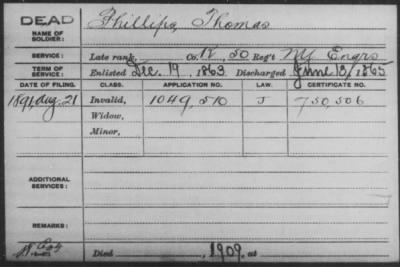 DEAD
NAME OF SOLDIER: Phillips, Thomas
SERVICE: Late rank, Co. K, 50 Reg't NY Engrs
TERM OF SERVICE: Enlisted Dec. 19, 1863 Discharged June 13, 1865
DATE OF FILING. CLASS. APPLICATION NO. LAW. CERTIFICATE NO.
1891, Aug. 21 Invalid, 1049,510 J 750,506
Widow,
Minor,
ADDITIONAL SERVICES:
REMARKS:
Died 1909, at